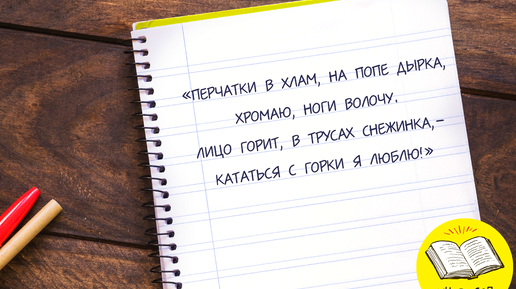 «ПЕРЧАТКИ В ХЛАМ, НА ПОПЕ ДЫРКА,
ХРОМАЮ, НОГИ ВОЛОЧУ.
ЛИЦО ГОРИТ, В ТРУСАХ СНЕЖИНКА,–
КАТАТЬСЯ С ГОРКИ Я ЛЮБЛЮ!»